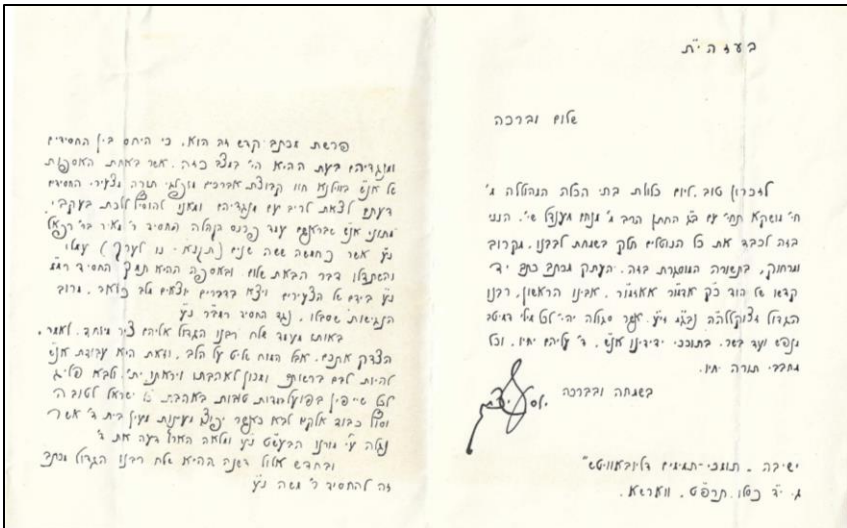 בעזהי"ת
שלום וברכה
לזכרון טוב. ליום כלולת בתי הכלה המהוללה מ'
חי' מושקא תחי' עם ב"ג החתן הרב מ' מנחם מענדל שי'. הנני
בזה לכבד את כל הנוטלים חלק בשמחת לבבנו. מקרוב
ומרחוק. בתשורה המוסגרת בזה. העתק מכתב כתב יד
קדשו של הוד כ"ק אדמו"ר אאזמו"ר. אבינו הראשון. רבנו
הגדול נבג"מ זי"ע. אשר סגולה יהי' לכל מילי דמיטב
מנפש ועד בשר. בתוככי ידידינו אנ"ש. ד' עליהם יחיו. וכל
מחבבי תורה יחיו.
בשמחה ובברכה
יוסף יצחק
ישיבה. תומכי-תמימים דליובאוויטש"
ג. י"ד כסלו. תרפ"ט. ווארשא.
פרשת מכתב קדש זה הוא. כי היחס בין החסידים
ומנגדיהם בעת ההיא הי' במצב כזה. אשר באחת האסיפות
של אנ"ש בווילנא חוו קבוצת אברכים מופלגי תורה מצעירי החסידים
דעתם לצאת לריב עם מנגדיהם ומאנו להוסיף ללכת בעקבי
מתוני אנ"ש שבראשם עמד פרנס הקהלה החסיד ר' מאיר בר' רפאל
נ"ע אשר כחמשה ששה שנים עמלו
והשתדלו דבר הבאת שלום ובאסיפה ההיא תמך החסיד
נ"ע בידם של הצעירים ויצא בדברים יוצאים מלב כואב. מרוב
הנגישות שסבלו. נגד החסיד נ"ע
באותו מעמד שלח רבנו הגדול אליהם ציר מיוחד. לאמר.
הצדק אתכם. אבל המוח שליט על הלב. וזאת היא עבודת אנ"ש
להיות לבם ברשותם ומכון לאהבתו ויראתו ית'.
ישראל לטוב ה'
וסוף כבוד אלקים לבא כאשר יפוצו מעינות מעין בית ד' אשר
נגלה ע"י מורנו הבעש"ט נ"ע ומלאה הארץ דעה את ד'
ובחדש אלול דשנה ההיא שלח רבנו הגדול מכתב
זה להחסיד ר' משה נ"ע